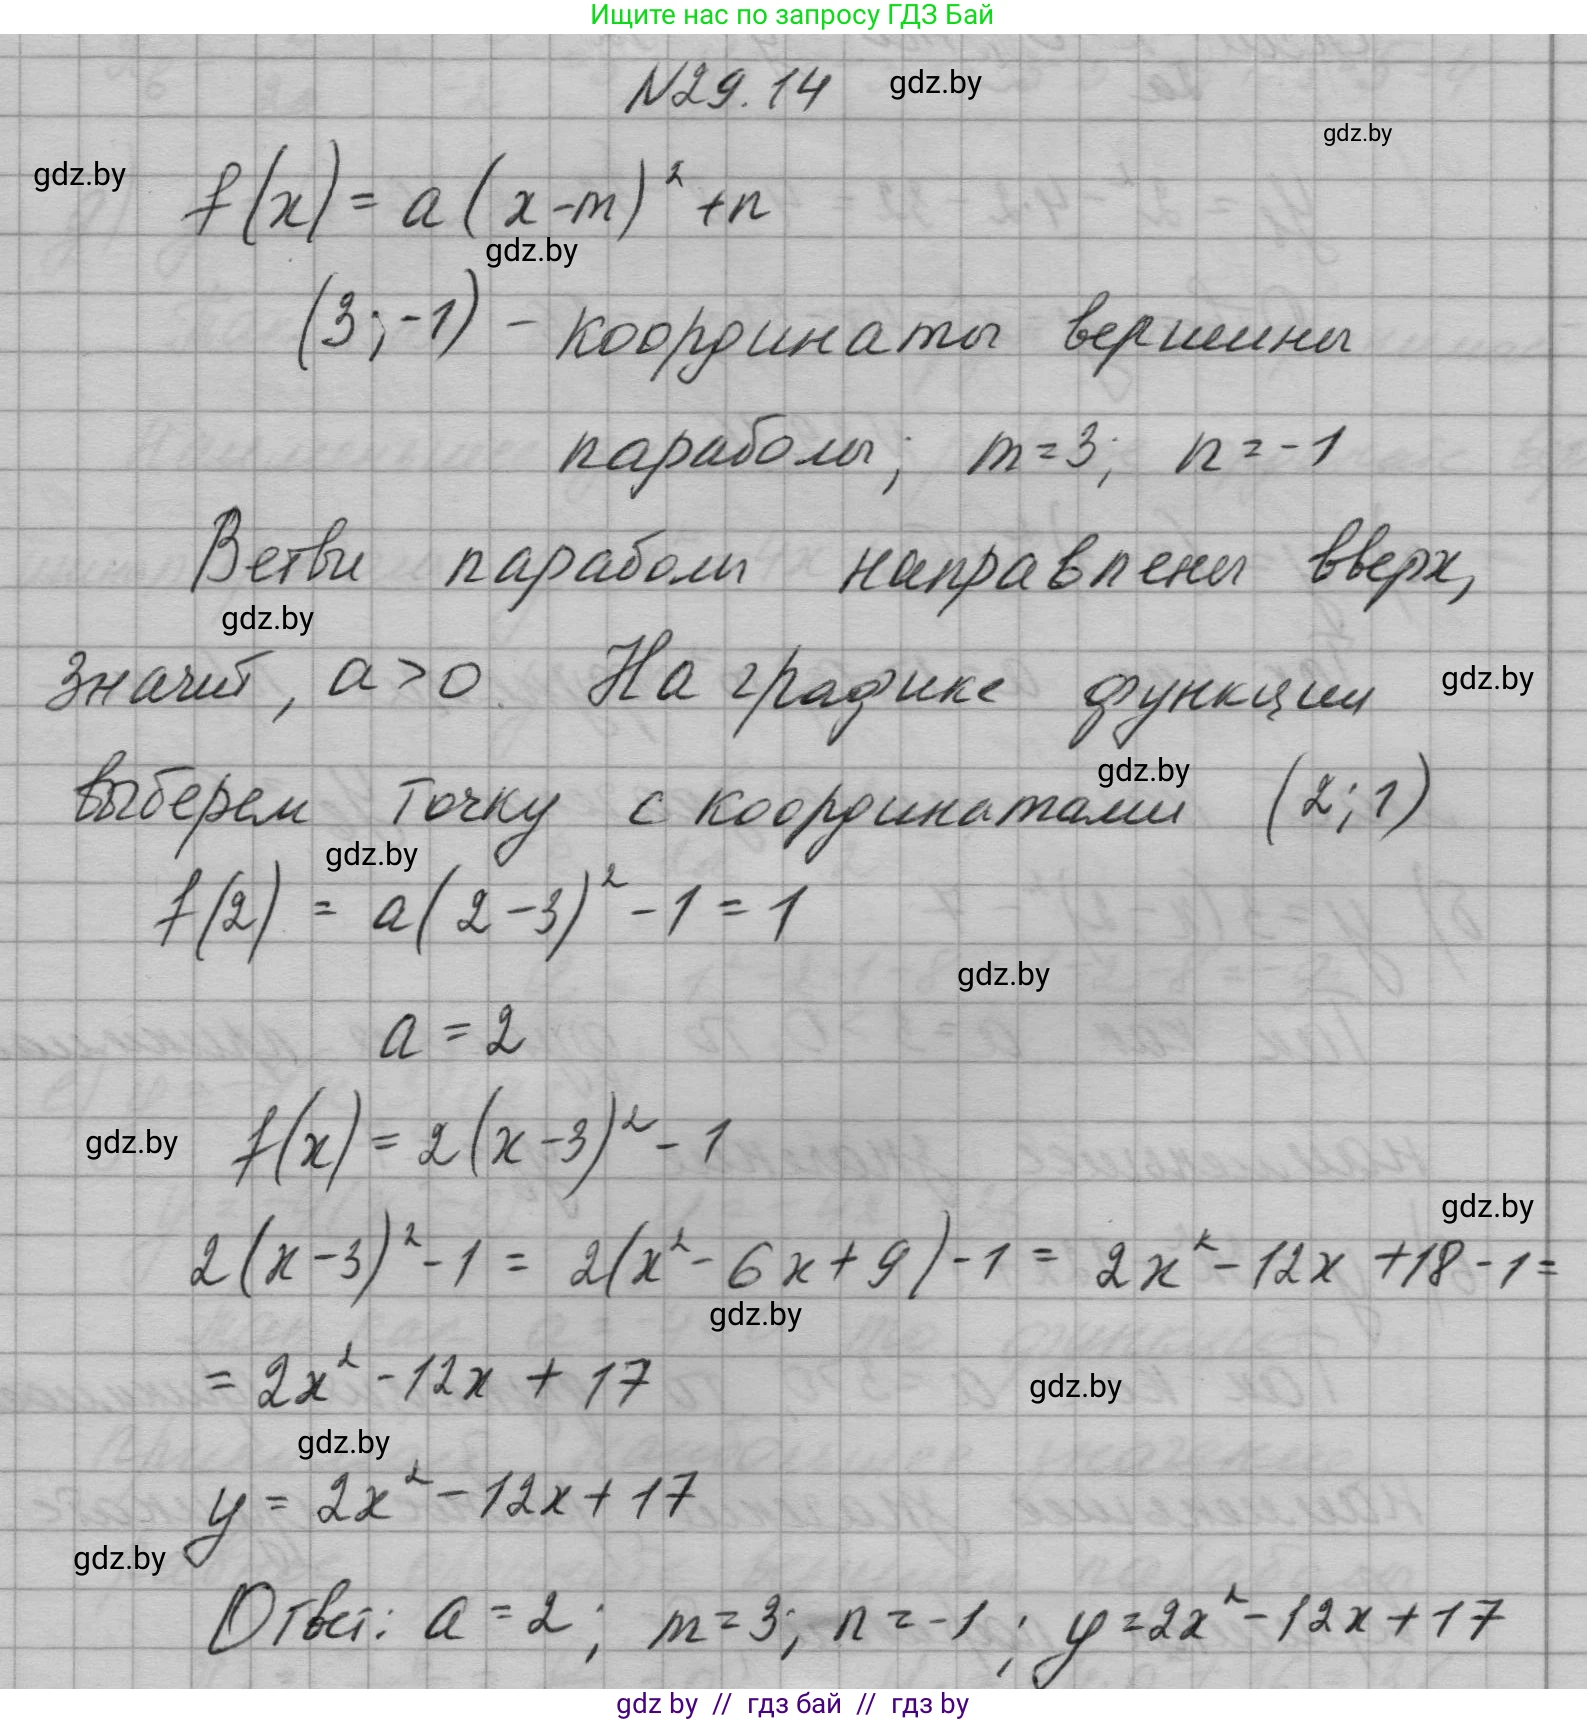 Ищите нас по запросу ГДЗ Бай
N29.14 gdz.by
gdz.by
gdz.by
f(x) = a(x-m)² +n
gdz.by
(3;-1) - координаты вершины
параболы; m=3; n=-1
Ветви параболы направлены вверх,
gdz.by
значит, a>0. На графике функции gdz.by
gdz.by
выберем точку с координатами (2;1)
gdz.by
f(2) = a(2-3)² -1=1
gdz.by
a=2
gdz.by f(x)=2(x-3)²-1
gdz.by
2(x-3)²-1= 2(x²-6x+9)-1= 2x²-12x+18-1=
gdz.by
= 2x²-12x+17
gdz.by
gdz.by
y= 2x²-12x+17
gdz.by
Ответ: a=2; m=3; n=-1; y=2x²-12x+17
gdz by // гдз бай // гдз by